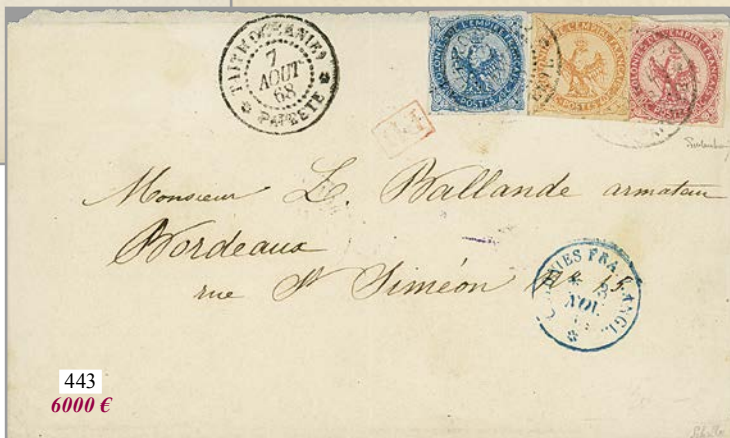 TAITI (OCEANIE)
7
AOUT
68
PAPEETE
COLONIES DE L'EMPIRE FRANÇAIS
POSTES
COLONIES DE L'EMPIRE FRANÇAIS
POSTES
COLONIES DE L'EMPIRE FRANÇAIS
POSTES
Monsieur L. Ballande armateur
Bordeaux
rue St Siméon No 13.
COLONIES FRA. ANGL.
3
NOV.
443
6000 €